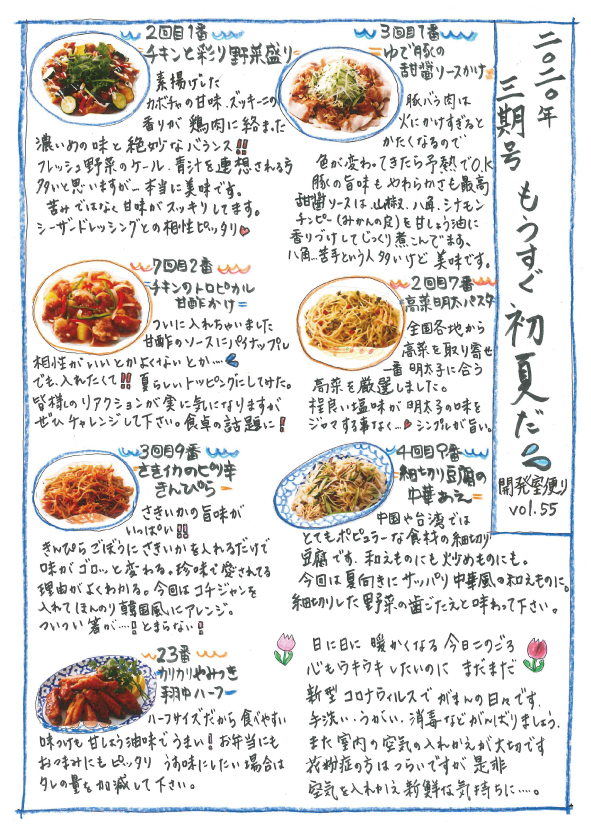 二〇二〇年
三期号 もうすぐ初夏だ
開発室便り
vol.55
3回目1番
ゆで豚の
甜醤ソースかけ
豚バラ肉は
火にかけすぎると
かたくなるので
色が変わってきたら予熱でO.K
豚の旨味もやわらかさも最高
甜醤ソースは、山椒、八角、シナモン
チンピー(みかんの皮)を甘しょう油に
香りづけしてじっくり煮こんでます、
八角…苦手という人多いけど美味です。
2回目1番
チキンと彩り野菜盛り
素揚げした
カボチャの甘味、ズッキーニの
香りが鶏肉に絡まった
濃いめの味と絶妙なバランス!!
フレッシュ野菜のケール、青汁を連想される方
多いと思いますが…本当に美味です。
苦みではなく甘味がスッキリしてます。
シーザードレッシングとの相性ピッタリ
2回目7番
高菜明太パスタ
全国各地から
高菜を取り寄せ
一番明太子に合う
高菜を厳選しました。
程良い塩味が明太子の味を
ジャマする事なく…シンプルが旨い。
7回目2番
チキンのトロピカル
甘酢かけ
ついに入れちゃいました
甘酢のソースにパイナップル
相性がいいとかよくないとか…
でも、入れたくて!!夏らしいトッピングにしてみた。
皆様のリアクションが実に気になりますが
ぜひチャレンジして下さい。食卓の話題に!
4回目9番
細切り豆腐の
中華あえ
中国や台湾では
とてもポピュラーな食材の細切り
豆腐です、和えものにも炒めものにも。
今回は夏向きにサッパリ中華風の和えものに。
細切りした野菜の歯ごたえと味わって下さい。
3回目9番
さきイカのピリ辛
きんぴら
さきいかの旨味が
いっぱい!!
きんぴらごぼうにさきいかを入れるだけで
味がゴロッと変わる。珍味で愛されてる
理由がよくわかる。今回はコチジャンを
入れてほんのり韓国風にアレンジ。
ついつい箸が…!とまらない!
23番
カリカリやみつき
手羽中ハーフ
ハーフサイズだから食べやすい
味つけも甘しょう油味でうまい!お弁当にも
おつまみにもピッタリ うす味にしたい場合は
タレの量を加減して下さい。
日に日に暖かくなる今日このごろ
心もウキウキしたいのに まだまだ
新型コロナウィルスでがまんの日々です、
手洗い、うがい、消毒などがんばりましょう、
また室内の空気の入れかえが大切です
花粉症の方はつらいですが是非
空気を入れかえ新鮮な気持ちに……。